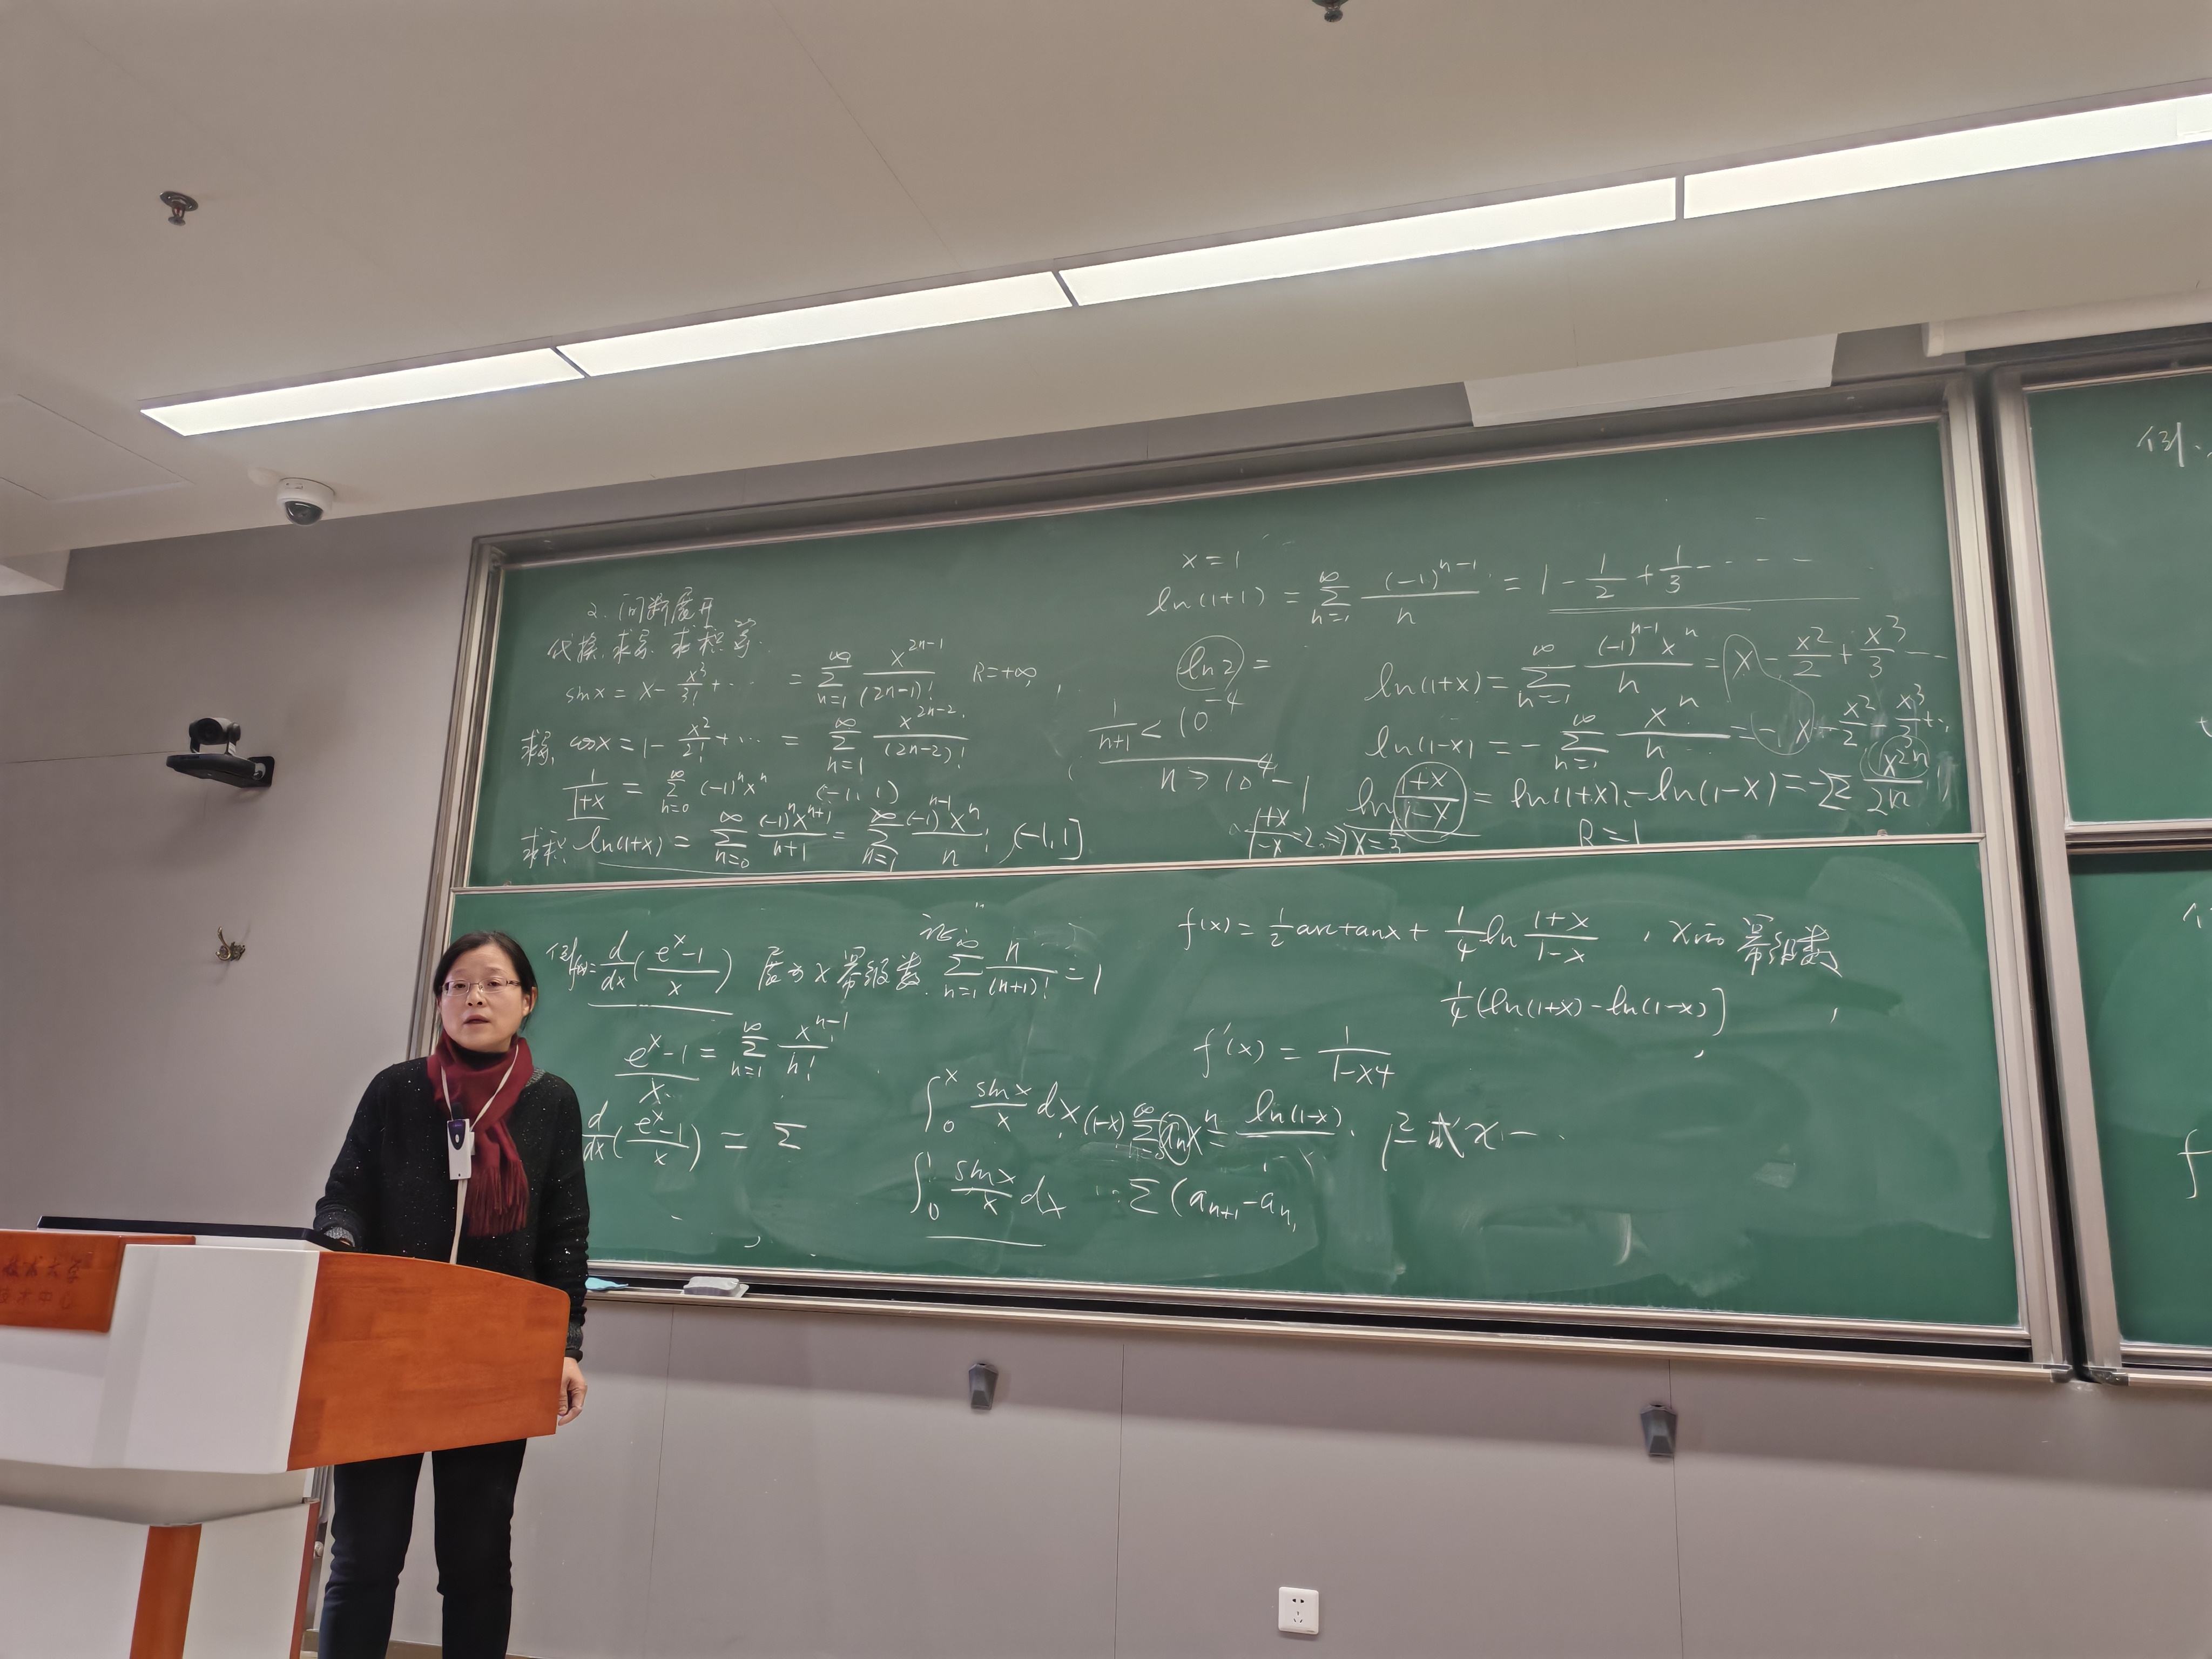 2. 间断展开
代换, 求导, 求积等.
sinx = x - x³/3! + ⋯ = ∑_{n=1}^{∞} x^{2n-1}/(2n-1)! R=+∞,
求导, cosx = 1 - x²/2! + ⋯ = ∑_{n=1}^{∞} x^{2n-2}/(2n-2)!
1/(1+x) = ∑_{n=0}^{∞} (-1)^n x^n (-1, 1)
求积, ln(1+x) = ∑_{n=0}^{∞} (-1)^n x^{n+1}/(n+1) = ∑_{n=1}^{∞} (-1)^{n-1} x^n/n, (-1,1]
x = 1
ln(1+1) = ∑_{n=1}^{∞} (-1)^{n-1}/n = 1 - 1/2 + 1/3 - ⋯
ln2 =
1/(n+1) < 10^{-4}
n ≥ 10^4 - 1
ln(1+x) = ∑_{n=1}^{∞} (-1)^{n-1} x^n/n = x - x²/2 + x³/3 ⋯
ln(1-x) = - ∑_{n=1}^{∞} x^n/n = - x - x²/2 - x³/3 + ⋯
ln (1+x)/(1-x) = ln(1+x) - ln(1-x) = -∑ x^{2n}/2n
(1+x)/(-x) = 2 ⇒ x = 3
R = 1
例. f(x) = d/dx((e^x-1)/x) 展为 x 幂级数. 证 ∑_{n=1}^{∞} n/(n+1)! = 1
(e^x-1)/x = ∑_{n=1}^{∞} x^{n-1}/n!
d/dx((e^x-1)/x) = ∑
∫_0^x sinx/x dx
∫_0^1 sinx/x dx
(1-x) ∑_{n=0}^{∞} a_n x^n = ln(1-x).
∑(a_{n+1} - a_n
f(x) = 1/2 arctanx + 1/4 ln (1+x)/(1-x), x 幂级数
1/4 (ln(1+x) - ln(1-x)]
f'(x) = 1/(1-x4
例.
f
技术中心